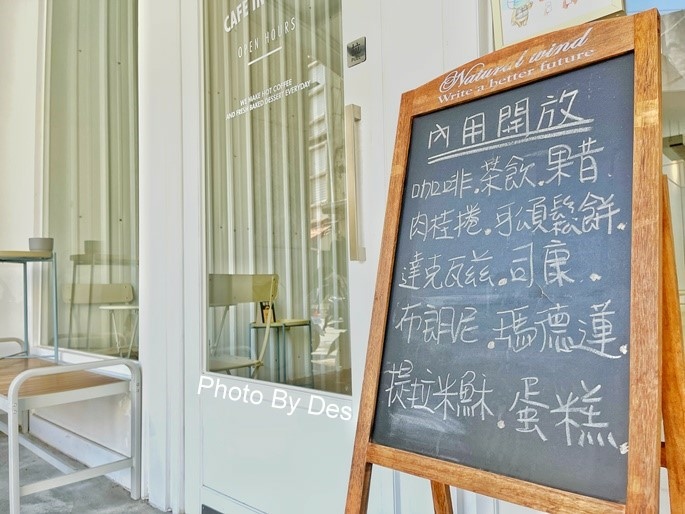 CAFE IN
OPEN HOURS
WE MAKE HOT COFFEE
AND FRESH BAKED DESSERT EVERYDAY
Natural wind
Write a better future
內用開放
咖啡.茶飲.果昔
肉桂捲.可頌鬆餅.
達克瓦茲.司康.
布朗尼.瑪德蓮.
提拉米酥.蛋糕.
Photo By Des